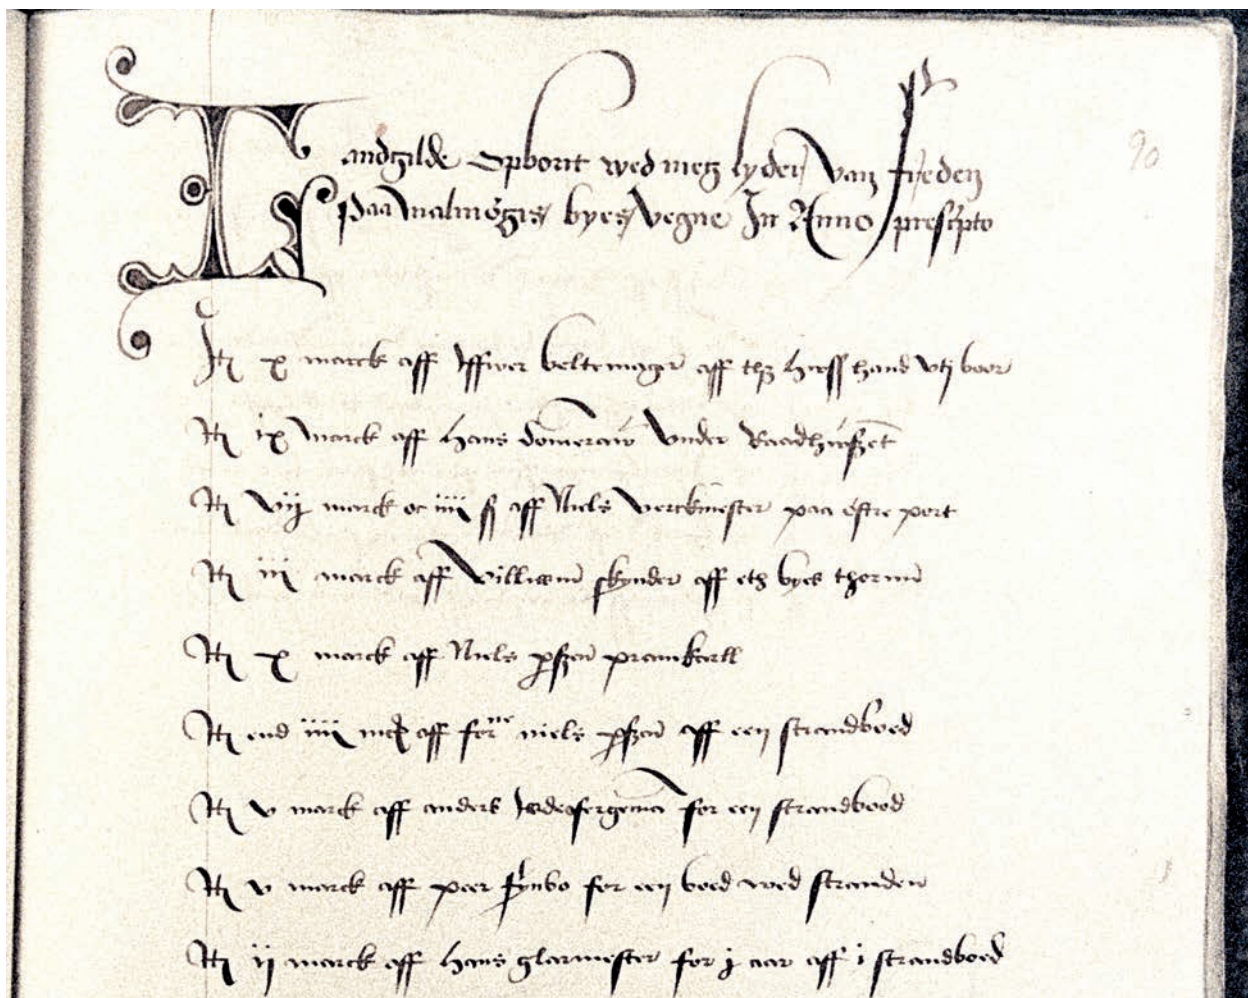 Landgilde Opborit wed meg lyder van freden
paa malmøgis byes vegne In Anno prescripto
90
Itm x marck aff Iffwer beltemager aff thz hwss hand vtj boor
Itm ix marck aff hans domeraw vnder Raadhusset
Itm vij marck oc iiii s aff Niels werckmester paa østre port
Itm iii marck aff villiam skynder aff eth byes thorn
Itm x marck aff Niels pszen pramkarll
Itm end iiii mck aff forne niels pszen aff een strandboed
Itm v marck aff anders for een strandbood
Itm v marck aff peer fynbo for een boed wed stranden
Itm ij marck aff hans glarmester for j aar aff i strandboed